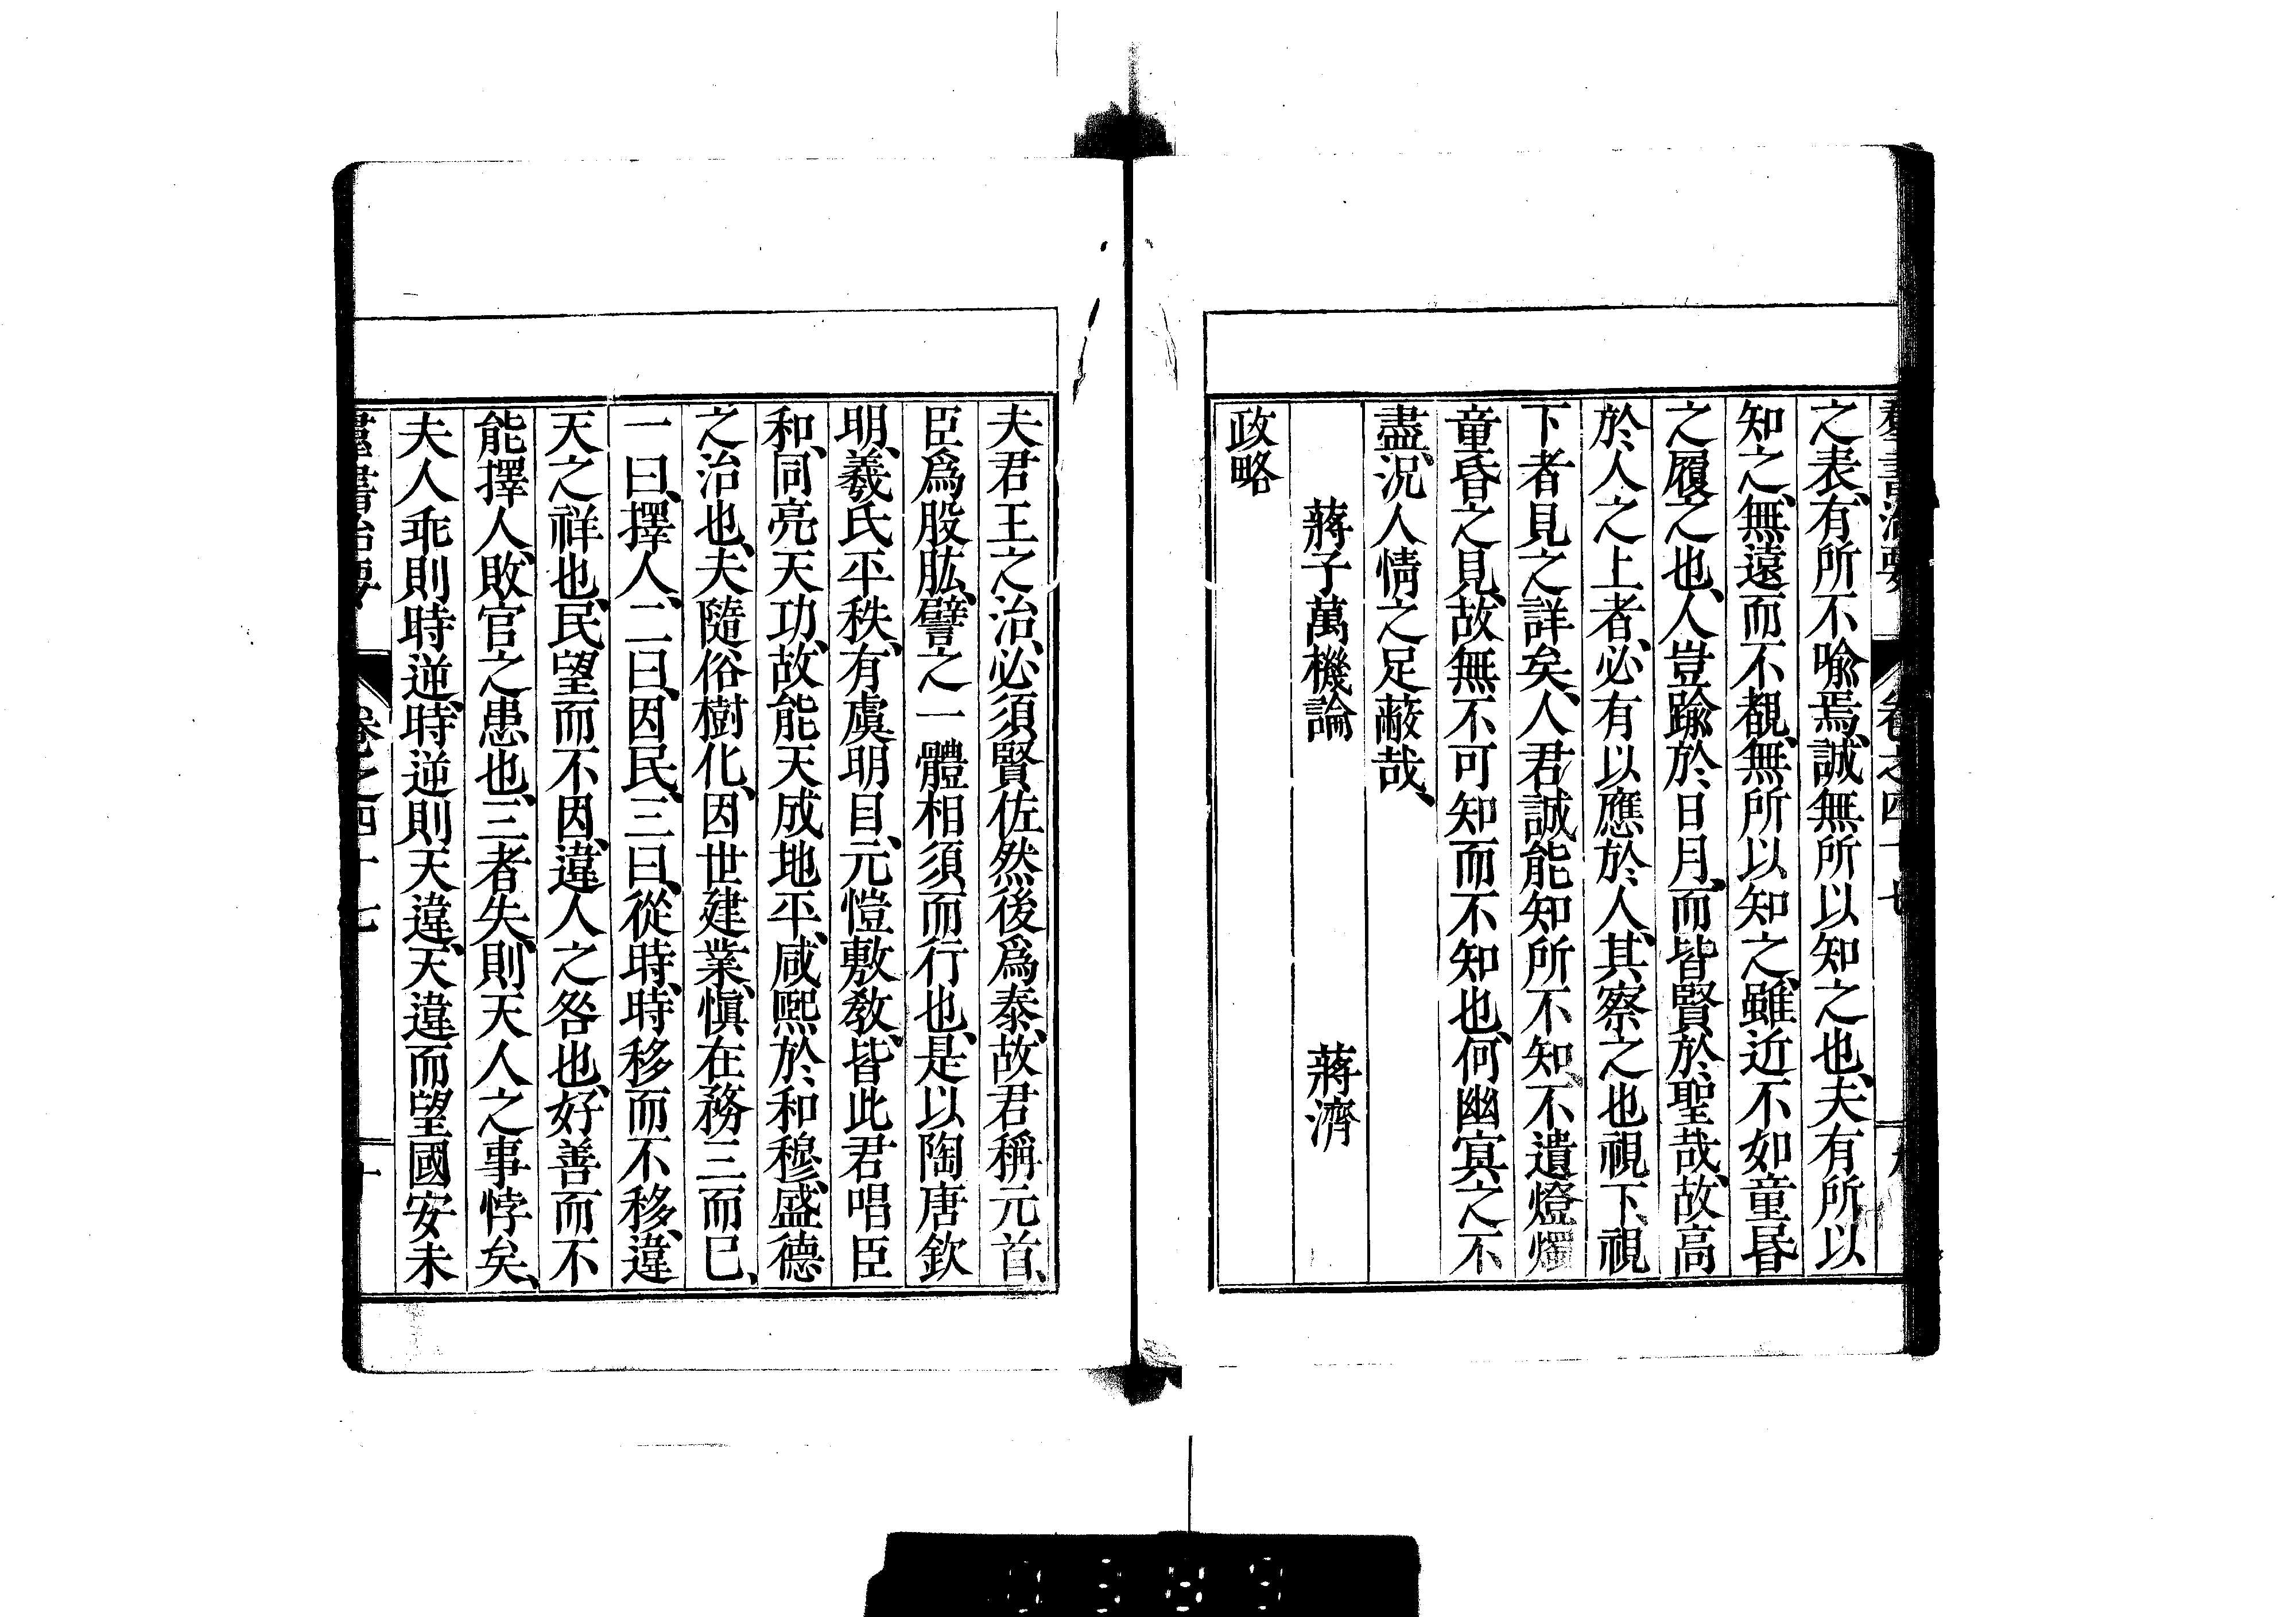 羣書治要 卷之四十七 九
之表、有所不喩焉、誠無所以知之也、夫有所以
知之、無遠而不覩、無所以知之、雖近不如童昬
之履之也、人豈踰於日月、而皆賢於聖哉、故高
於人之上者、必有以應於人、其察之也視下、視
下者見之詳矣、人君誠能知所不知、不遺燈燭
童昬之見、故無不可知而不知也、何幽寘之不
盡、況人情之足蔽哉、
蔣子萬機論 蔣濟
政略
夫君王之治、必須賢佐然後爲泰、故君稱元首、
臣爲股肱、譬之一體相須而行也、是以陶唐欽
明、羲氏平秩、有虞明目、元愷敷敎、皆此君唱臣
和、同亮天功、故能天成地平、咸熙於和穆、盛德
之治也、夫隨俗樹化、因世建業、愼在務三而已、
一曰、擇人、二曰、因民、三曰、從時、時移而不移、違
天之祥也、民望而不因、違人之咎也、好善而不
能擇人、敗官之患也、三者失、則天人之事悖矣、
夫人乖則時逆、時逆則天違、天違而望國安未
羣書治要 卷之四十七 十